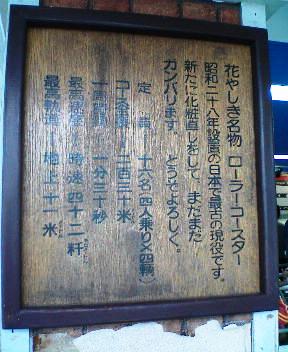 花やしき名物 ローラーコースター
昭和二十八年設置の日本で最古の現役です。
新たに化粧直しをして まだまだ
ガンバリます。 どうぞよろしく。
定員 十六名(四人乗り×四輌)
コース全長 二百三十米
一周時間 一分三十秒
最高速度 時速四十二粁
最高軌道 地上十一米